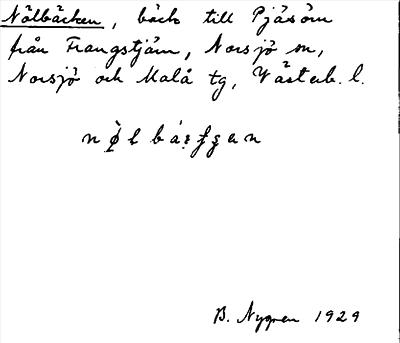 Nölbäcken, bäck till Pjäsöm
från Frangstjärn, Norsjö sn,
Norsjö och Malå tg, Västerb. l.
B. Nygren 1929